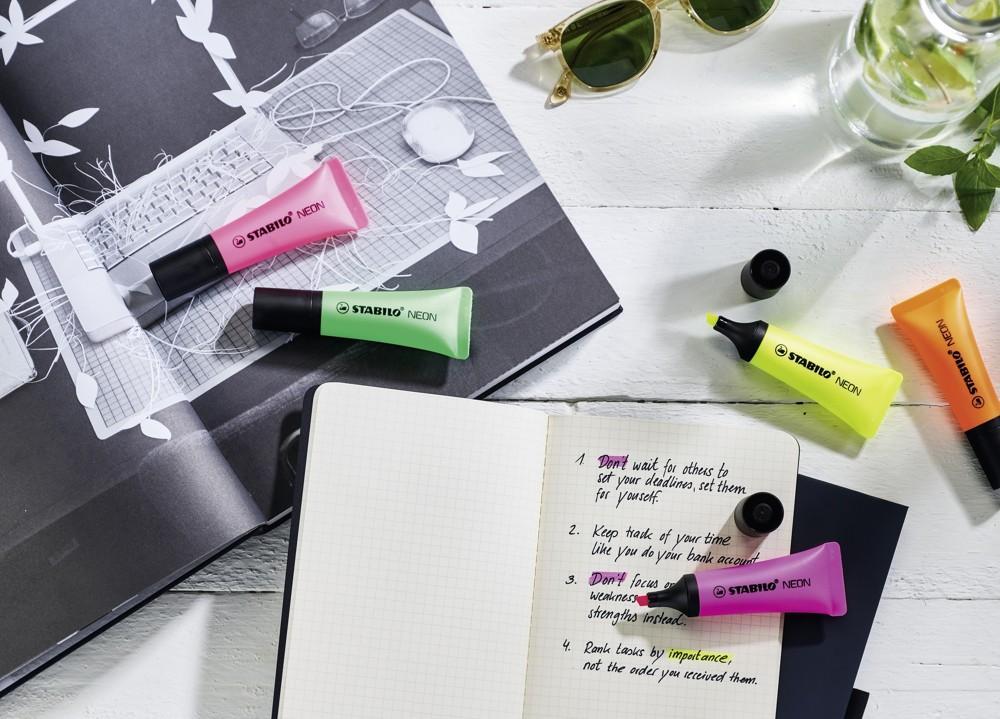 STABILO NEON
STABILO NEON
STABILO NEON
STABILO NEON
1. Don't wait for others to
set your deadlines, set them
for youself.
2. Keep track of your time
like you do your bank account
3. Don't focus on
weakness
strengths instead.
STABILO NEON
4. Rank tasks by importance,
not the order you received them.